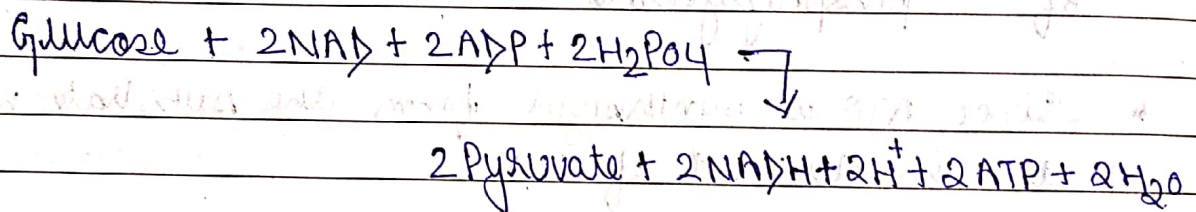 Glucose + 2NAD + 2ADP + 2H2PO4 →
2 Pyruvate + 2NADH + 2H⁺ + 2ATP + 2H2O